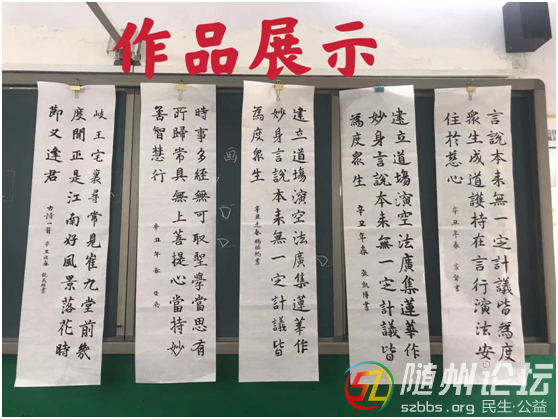 作品展示
岐王宅裏尋常見崔九堂前幾
度聞正是江南好風景落花時
節又逢君
古詩一首 辛丑
時事多經無可取聖學當思有
所歸常具無上菩提心當持妙
善智慧行
辛丑年春
建立道場演空法廣集蓮華作
妙身言說本来無一定計議皆
為度眾生
辛丑
建立道場演空法廣集蓮華作
妙身言說本来無一定計議皆
為度眾生
辛丑年春 張凱博書
言說本来無一定計議皆為度
眾生成道護持在言行演法安
住於慈心
辛丑年春
画
随州论坛
szbbs.org 民生·公益